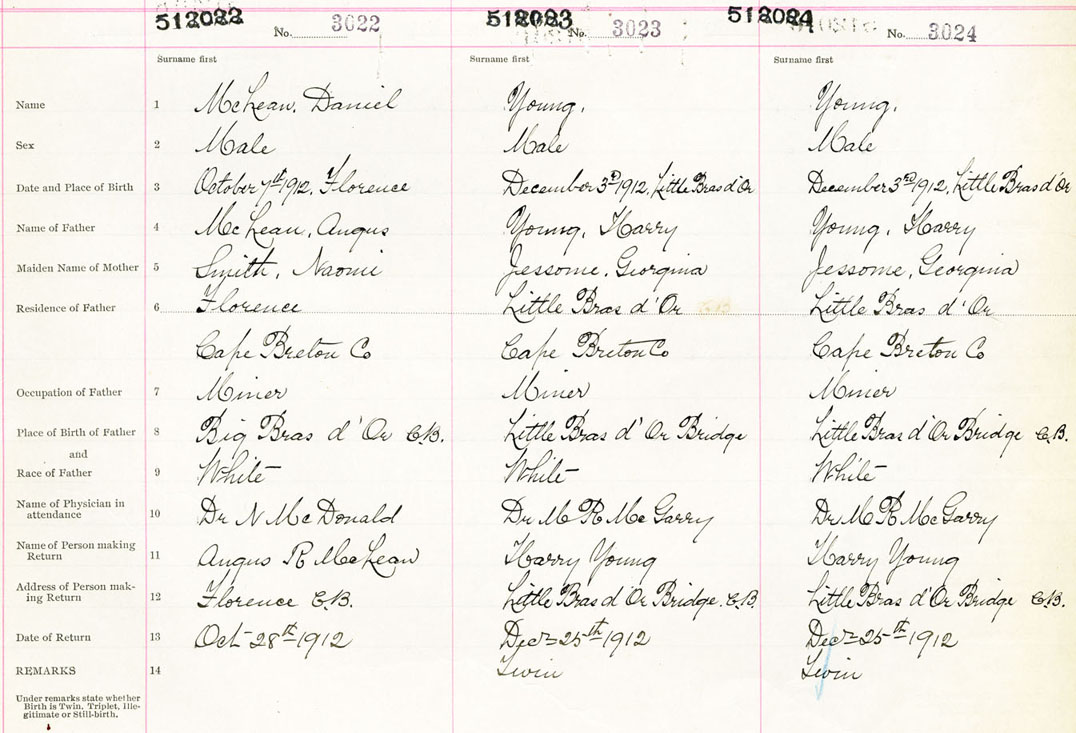 512022 512023 512024
No. 3022 No. 3023 No. 3024
Surname first Surname first Surname first
Name 1 McLean, Daniel Young, Young,
Sex 2 Male Male Male
Date and Place of Birth 3 October 7th 1912, Florence December 3rd 1912, Little Bras d'Or December 3rd 1912, Little Bras d'Or
Name of Father 4 McLean, Angus Young, Harry Young, Harry
Maiden Name of Mother 5 Smith, Naomi Jessome, Georgina Jessome, Georgina
Residence of Father 6 Florence Little Bras d'Or Little Bras d'Or
Cape Breton Co Cape Breton Co Cape Breton Co
Occupation of Father 7 Miner Miner Miner
Place of Birth of Father 8 Big Bras d'Or C.B. Little Bras d'Or Bridge Little Bras d'Or Bridge C.B.
and
Race of Father 9 White White White
Name of Physician in
attendance 10 Dr N McDonald Dr M R McGarry Dr M R McGarry
Name of Person making
Return 11 Angus R McLean Harry Young Harry Young
Address of Person mak-
ing Return 12 Florence C.B. Little Bras d'Or Bridge. C.B. Little Bras d'Or Bridge C.B.
Date of Return 13 Oct 28th 1912 Dec 25th 1912 Dec 25th 1912
REMARKS 14 Twin Twin
Under remarks state whether
Birth is Twin, Triplet, Ille-
gitimate or Still-birth.